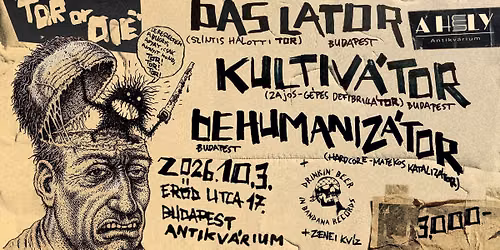 TOR or DIE!
DAS LATOR
(SZINTIS HALOTTI TOR) BUDAPEST
KULTIVÁTOR
(ZAJOS-GÉPES DEFIBRILLÁTOR) BUDAPEST
DEHUMANIZÁTOR
BUDAPEST
(HARDCORE-MATEKOS KATALIZÁTOR)
2026.10.3.
ERŐD UTCA 17.
BUDAPEST
ANTIKVÁRIUM
A HELY
Antikvárium
DRINKIN' BEER
IN BANDANA RECORDS
+ ZENEI KVÍZ
3.000-